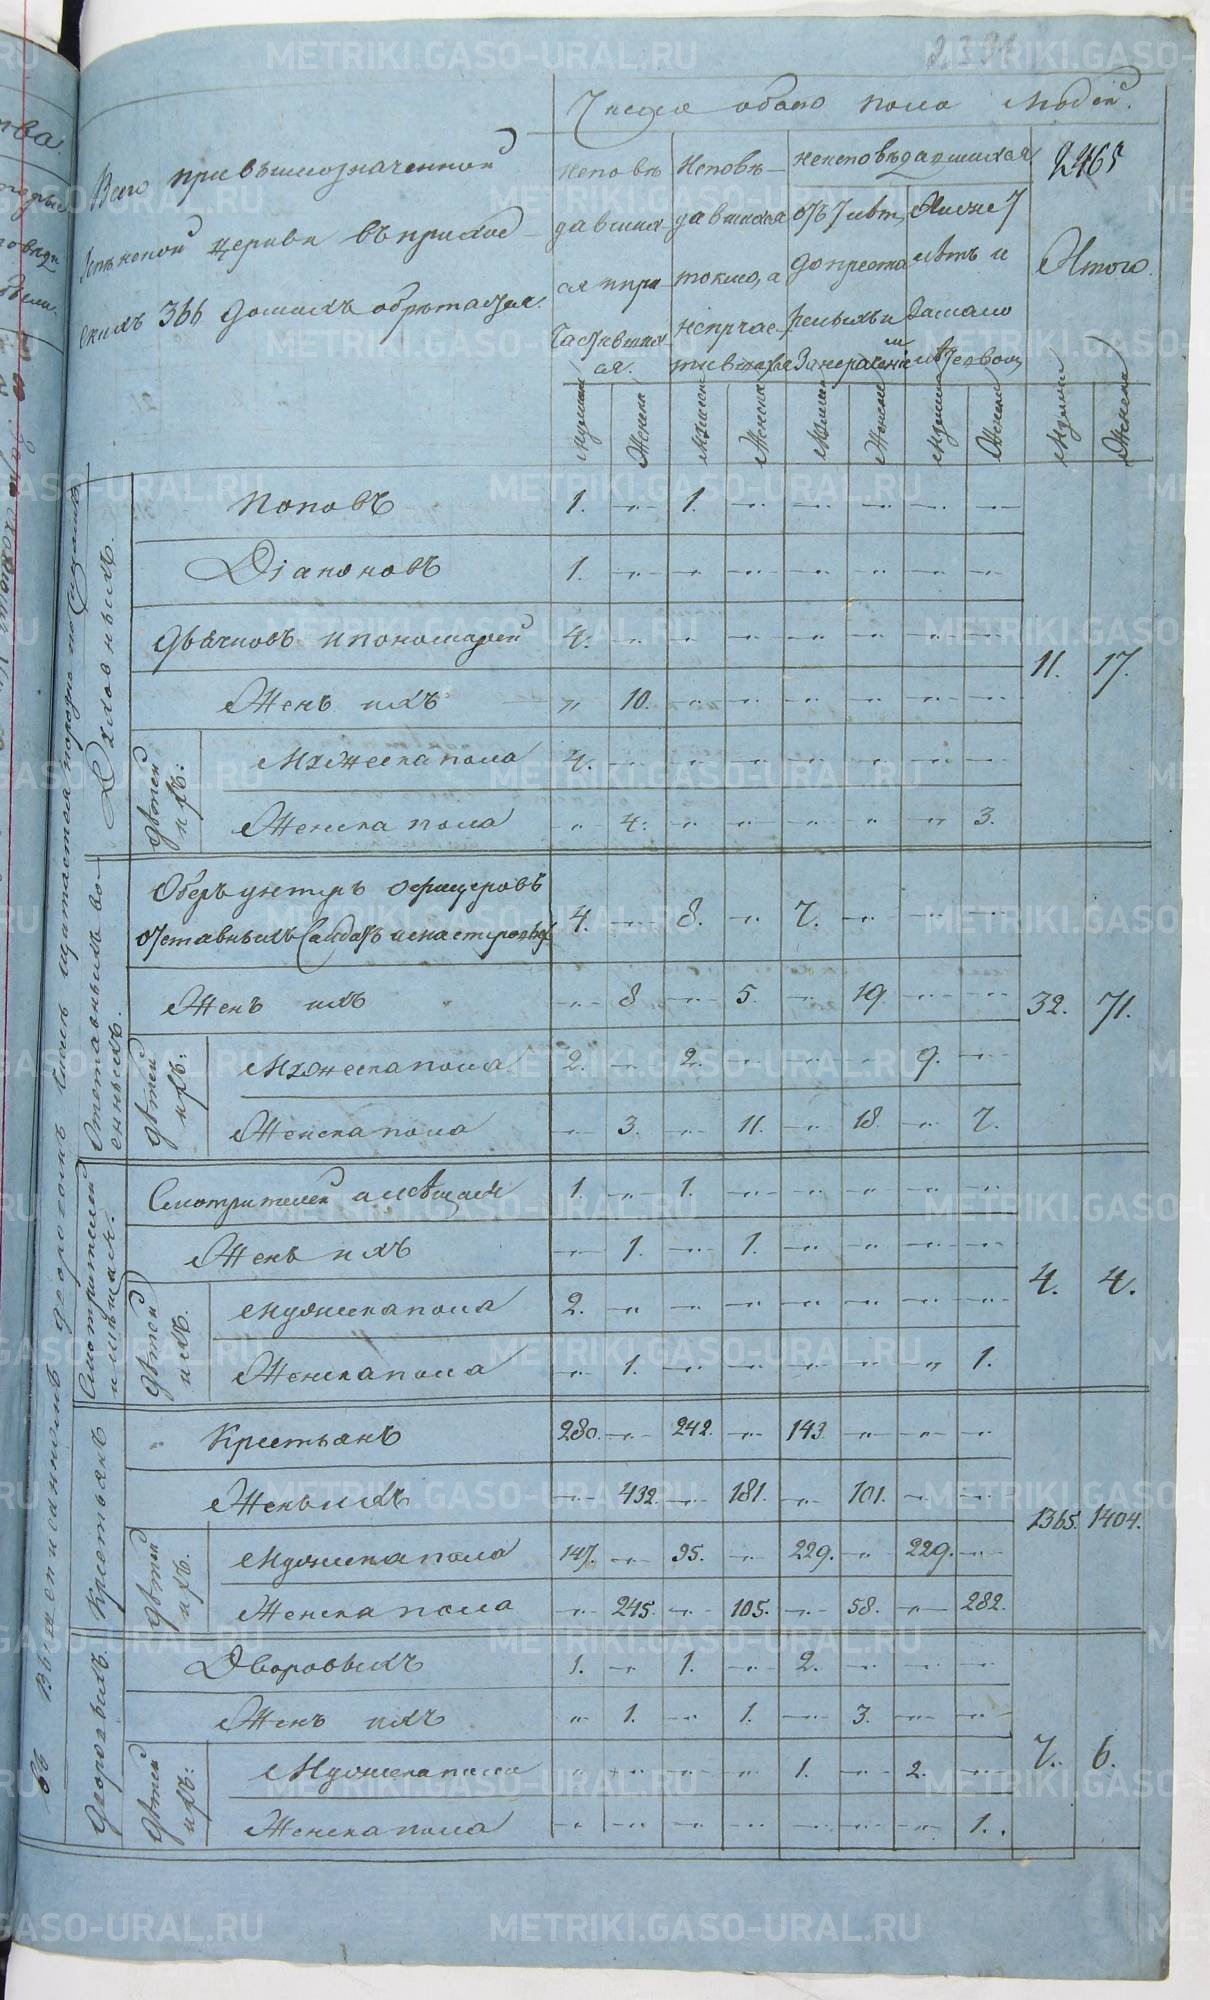 Числа обоего пола людей.
Всего при вышеозначенной
церкви въ приход
скихъ 366 домахъ обретается
Исповѣ
давших
ся и при
частивших
ся.
Исповѣ-
давшихся
токмо, а
не причас
тившихся
неисповѣдавшихся
отъ 7 лѣт,
до преста
релыхъ и
Менѣ 7
лѣтъ и
2465
Итого.
Мужеск Женска Мужеск Женска Мужеск Женска Мужеск Женска Мужеск Женска
Въ вышеписанномъ
Духовныхъ.
Поповъ 1. -"- 1. -"- -"- -"- -"- -"-
Дiаконовъ 1. -"- -"- -"- -"- -"- -"- -"-
Дьячковъ и пономарей 4. -"- -"- -"- -"- -"- -"- -"-
11. 17.
Женъ ихъ " 10. -"- -"- -"- -"- -"- -"-
дѣтей ихъ:
Мужеска пола 4. -"- -"- -"- -"- -"- -"- -"-
Женска пола -"- 4. -"- -"- -"- -"- -"- 3.
Отставныхъ во-
енныхъ.
Оберъ унтеръ офицеровъ
отставныхъ Салдатъ 4. -"- 8. -"- 7. -"- -"- -"-
Женъ ихъ -"- 8 -"- 5. -"- 19. -"- -"- 32. 71.
дѣтей ихъ:
Мужеска пола 2. -"- 2. -"- -"- -"- 9. -"-
Женска пола -"- 3. -"- 11. -"- 18. -"- 7.
Смотрителей
Смотрителей 1. -"- 1. -"- -"- -"- -"- -"-
Женъ ихъ -"- 1. -"- 1. -"- -"- -"- -"-
4. 4.
дѣтей ихъ.
Мужеска пола 2. -"- -"- -"- -"- -"- -"- -"-
Женска пола -"- 1. -"- -"- -"- -"- " 1.
Крестьянъ
Крестьянъ 280. -"- 242. -"- 143. -"- -"- -"-
Женъ ихъ -"- 432. -"- 181. -"- 101. -"- -"-
1365. 1404.
дѣтей ихъ.
Мужеска пола 147. -"- 95. -"- 229. -"- 229. -"-
Женска пола -"- 245. -"- 105. -"- 58. -"- 282.
Дворовыхъ.
Дворовыхъ 1. -"- 1. -"- 2. -"- -"- -"-
Женъ ихъ -"- 1. -"- 1. -"- 3. -"- -"-
7. 6.
дѣтей ихъ:
Мужеска пола -"- -"- -"- -"- 1. -"- 2. -"-
Женска пола -"- -"- -"- -"- -"- -"- -"- 1.
METRIKI.GASO-URAL.RU